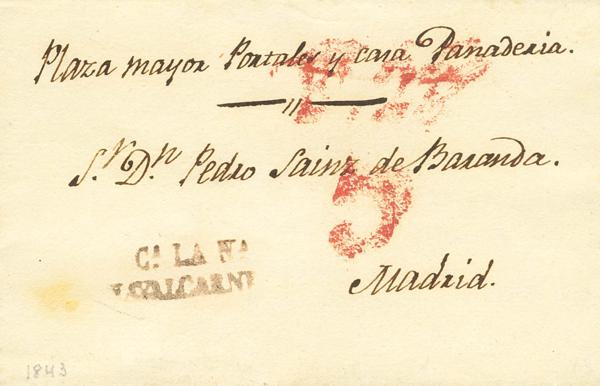 Plaza mayor Portales y casa Panaderia.
Sr. Dn. Pedro Sainz de Baranda.
5
Madrid.
Ca. LA NA
VALCARNE
1843